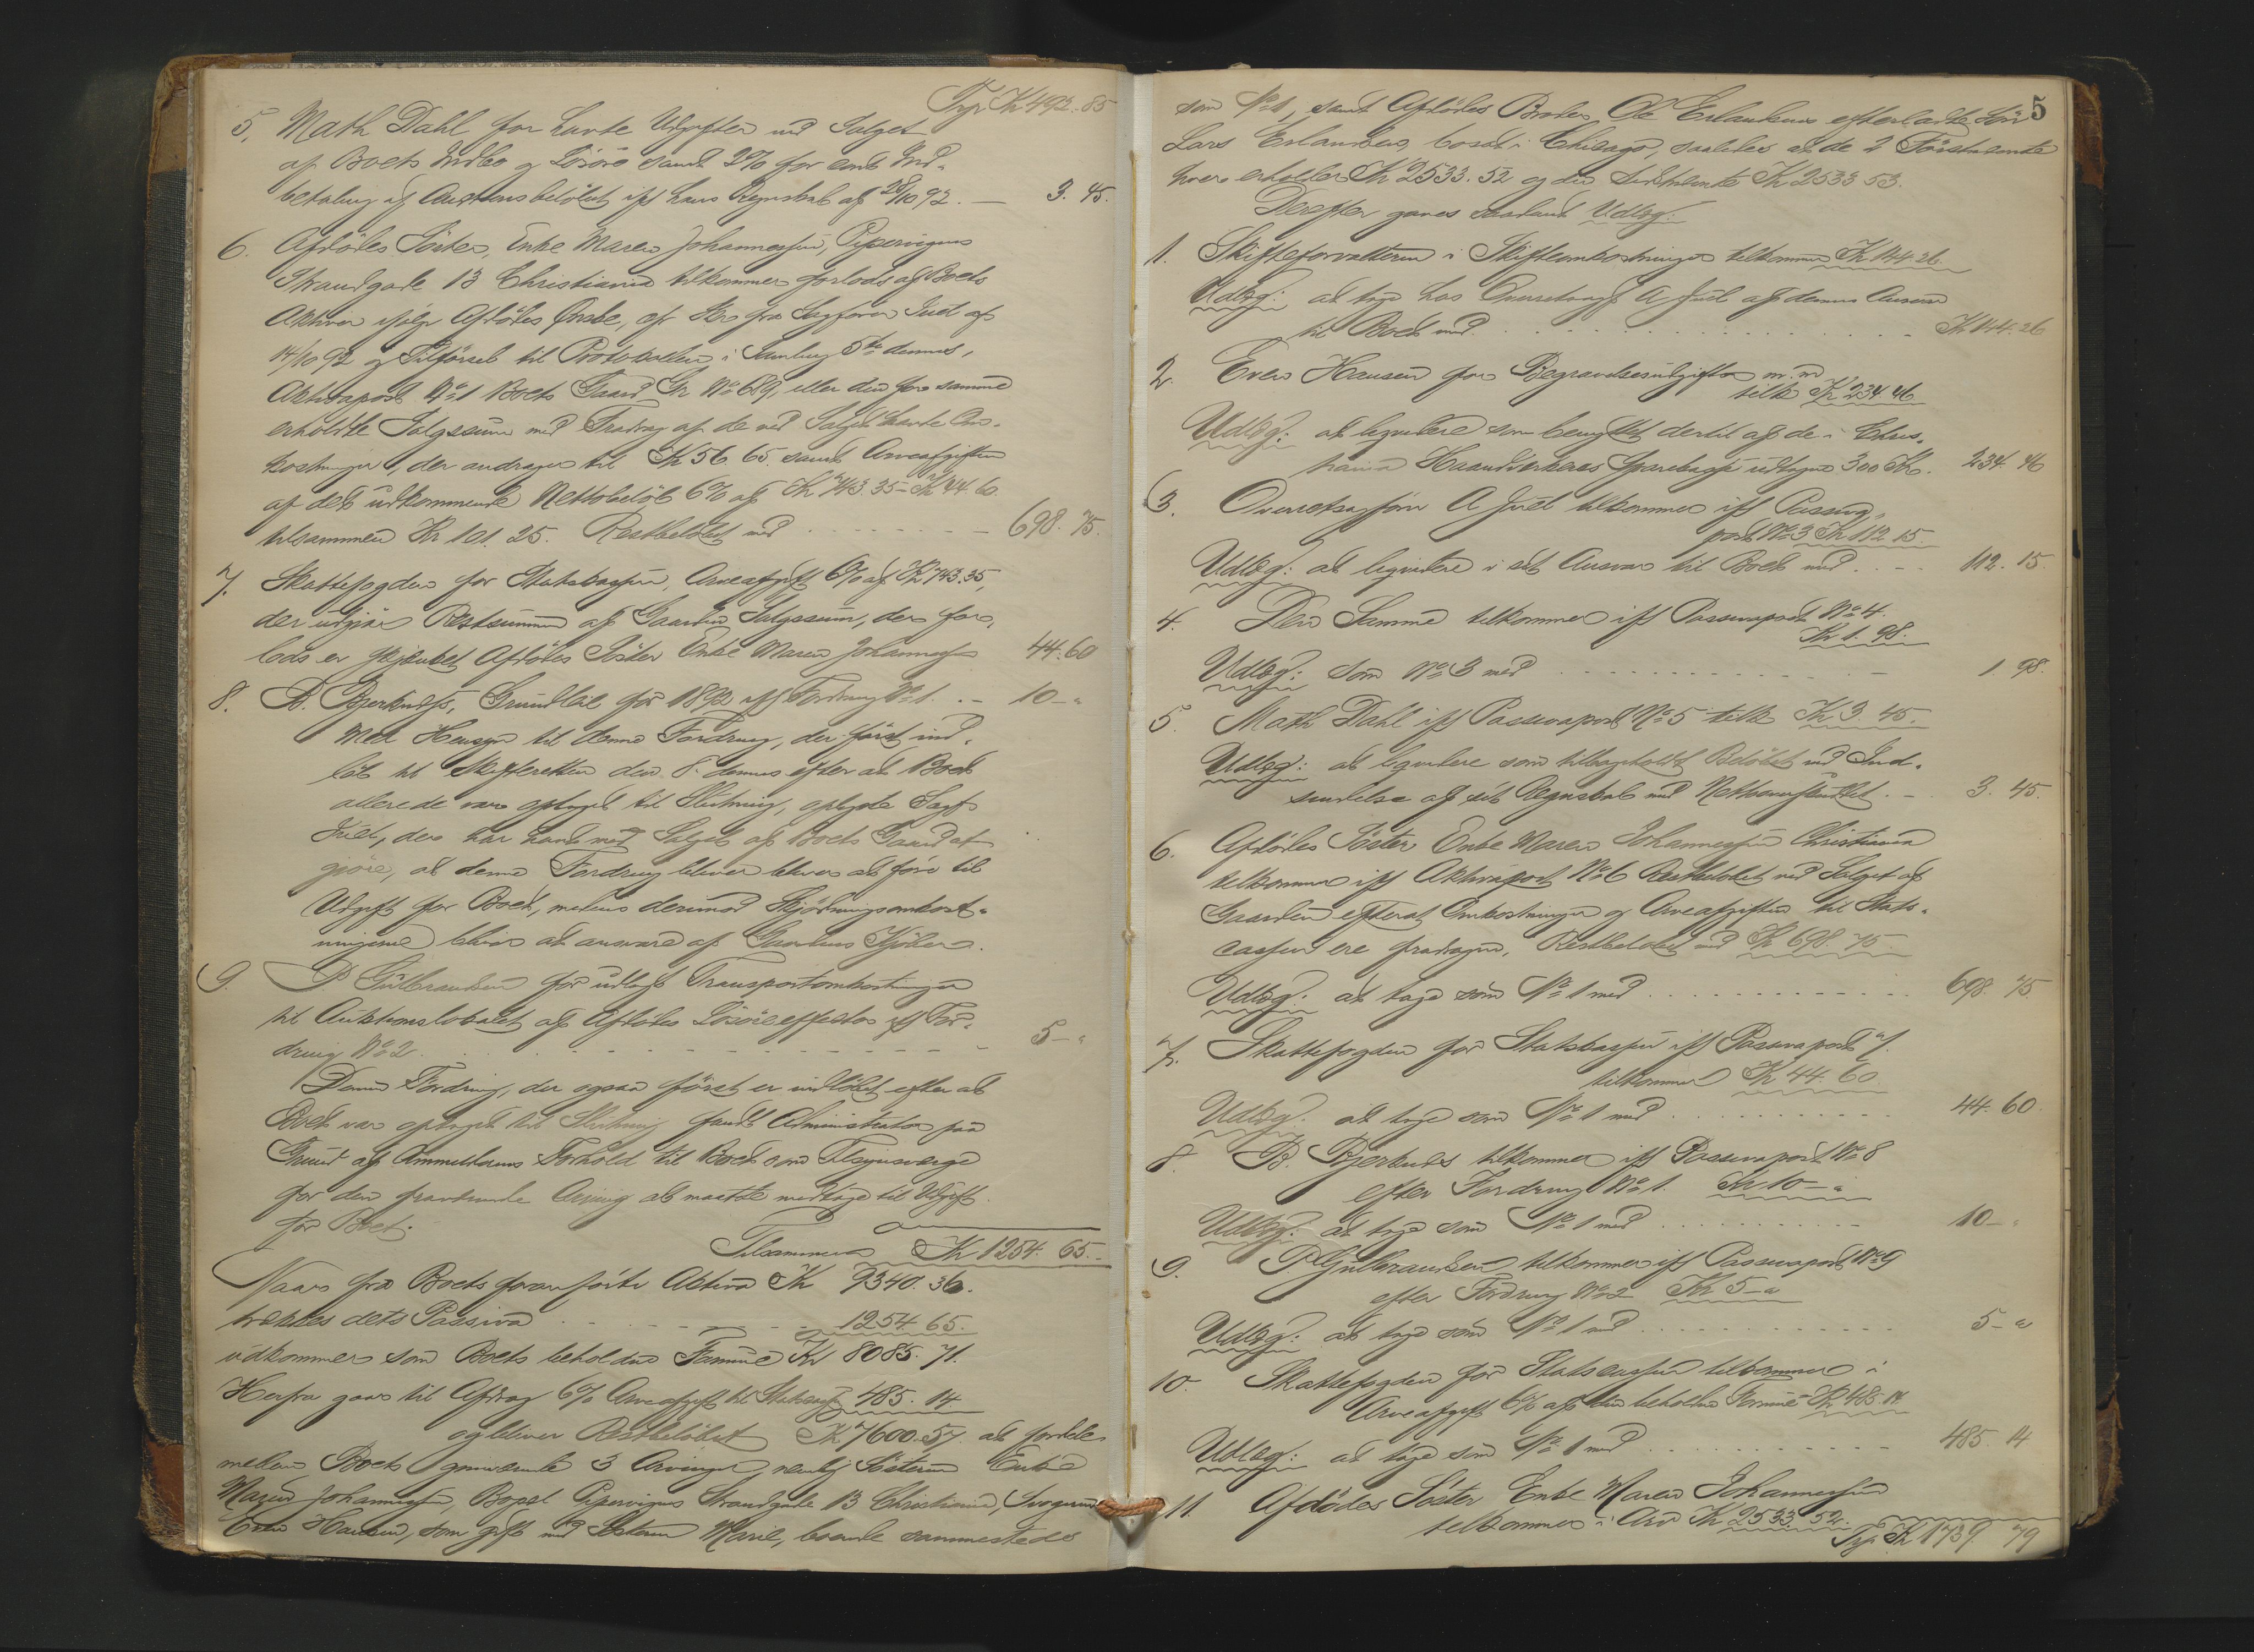 Trp. Kr 492.85
5. Math Dahl for havte Udgifter ved Salget
af Boets Indbo og Løsøre samt 2% for 
betaling af Auctionsbeløbet iflg hans Regnskab af 28/10 92. — 3.45.
6. Afdødes Søster, Enke Maren Johannessen, Pipervigens
Strandgade 13 Christiania tilkommer forlods af Boets
Aktiva ifølge Afdødes Ønske, cfr. Skr. fra Sagfører Juel af
14/10 92 og Tilførsel til Protokollen i Samling 5te dennes,
Aktivapost No 1 Boets Gaard Gr No 689, eller den for samme
erholdte Salgssum med Fradrag af de ved Salget havte Om-
kostninger, der andrager til Kr 56.65. samt Arveafgiften
af det udkommende Nettobeløb 6% af Kr 743.35 = Kr 44.60.
tilsammen Kr 101.25. Restbeløbet med — 698.75.
7. Skattefogden for Statskassen, Arveafgift 6% af Kr 743.35,
der udgjør Restsummen af Gaardens Salgssum, der for-
lods er skjænket Afdødes Søster Enke Maren Johannessen 44.60
8. B. Bjerknes, Grundleie for 1892 iflg Fordring No 1. — 10 - "
Med Hensyn til denne Fordring, der først ind-
løb til Skifteretten den 8. dennes efter at Boet
allerede var optaget til Slutning, oplyste Sagf.
Juel, der har havt med Salget af Boets Gaard at
gjøre, at denne Fordring bliver at føre til
Udgift for Boet, medens derimod Skjødningsomkost-
ningerne bliver at ansvare af Gaardens Kjøber.
9. P Gulbrandsen for udlagt Transportomkostninger
til Auktionslokalet af Afdødes Løsøreeffecter iflg For-
dring No 2. — 5 - "
Denne Fordring, der ogsaa først er indløbet efter at
Boet var optaget til Slutning fandt Administrator paa
Grund af Anmelderens Forhold til Boet som Tilsynsværge
for den fraværende Arving at maatte medtage til Udgift
for Boet.
Tilsammen Kr 1254.65.
Naar fra Boets foranførte Aktiva Kr 9340.36.
trækkes dets Passiva — 1254.65.
udkommer som Boets beholdne Formue Kr 8085.71.
Herfra gaar til Afdrag 6% Arveafgift til Statskassen 485.14
og bliver Restbeløbet Kr 7600.57. at fordele
mellem Boets 3 Arvinger, nemlig Søsteren Enke
Maren Johannessen, Bopæl Pipervigens Strandgade 13 Christiania, Svogeren
Even Hansen, som gift med Søsteren Marie, boende sammesteds
5
som No 1, samt Afdødes Broder Ole Erlandsens efterladte Søn
Lars Erlandsen, bosat i Chicago, saaledes at de 2 Førstnævnte
hver erholder Kr 2533.52 og den Sidstnævnte Kr 2533.53.
Derefter gaves saadant Udlæg:
1. Skifteforvalteren i Skifteomkostninger tilkommer Kr 144.26.
Udlæg: at tage hos Overretssagf. A Juel af dennes Ansvar
til Boet med — Kr 144.26
2. Even Hansen for Begravelsesudgifter m.m
tilk Kr 234.46
Udlæg: at liqvidere som benyttet dertil af de i Chris-
tiania Haandværkeres Sparekasse udtagne 300 Kr. 234.46
3. Overretssagfører A Juel tilkommer iflg Passiva-
post No 3 Kr 112.15.
Udlæg: at liqvidere i sit Ansvar til Boet med — 112.15.
4. Den Samme tilkommer iflg Passivapost No 4.
Kr 1.98.
Udlæg: som No 3 med — 1.98.
5. Math Dahl iflg Passivapost No 5 tilk Kr 3.45.
Udlæg: at liqvidere som tilbageholdt Beløbet ved Ind-
sendelse af sit Regnskab med — 3.45.
6. Afdødes Søster Enke Maren Johannessen Christiania
tilkommer iflg Aktivapost No 6 Restbeløbet ved Salget af
Gaarden efterat Omkostninger og Arveafgiften til Stats-
cassen ere fradragne, Restbeløbet med Kr 698.75
Udlæg: at tage som No 1 med — 698.75
7. Skattefogden for Statskassen iflg Passivapost 7.
tilkommer Kr 44.60.
Udlæg: at tage som No 1 med — 44.60.
8. B. Bjerknes tilkommer iflg Passivapost No 8
efter Fordring No 1. Kr 10 - "
Udlæg: at tage som No 1 med — 10 - "
9. P Gulbrandsen tilkommer iflg Passivapost No 9
efter Fordring No 2 Kr 5 - "
Udlæg: at tage som No 1 med — 5 - "
10. Skattefogden for Statscassen tilkommer i
Arveafgift 6% af den beholdne Formue = Kr 485.14.
Udlæg: at tage som No 1 med — 485.14
11. Afdødes Søster Enke Maren Johannessen
tilkommer i Arv Kr 2533.52.
Trp. Kr 1739.79